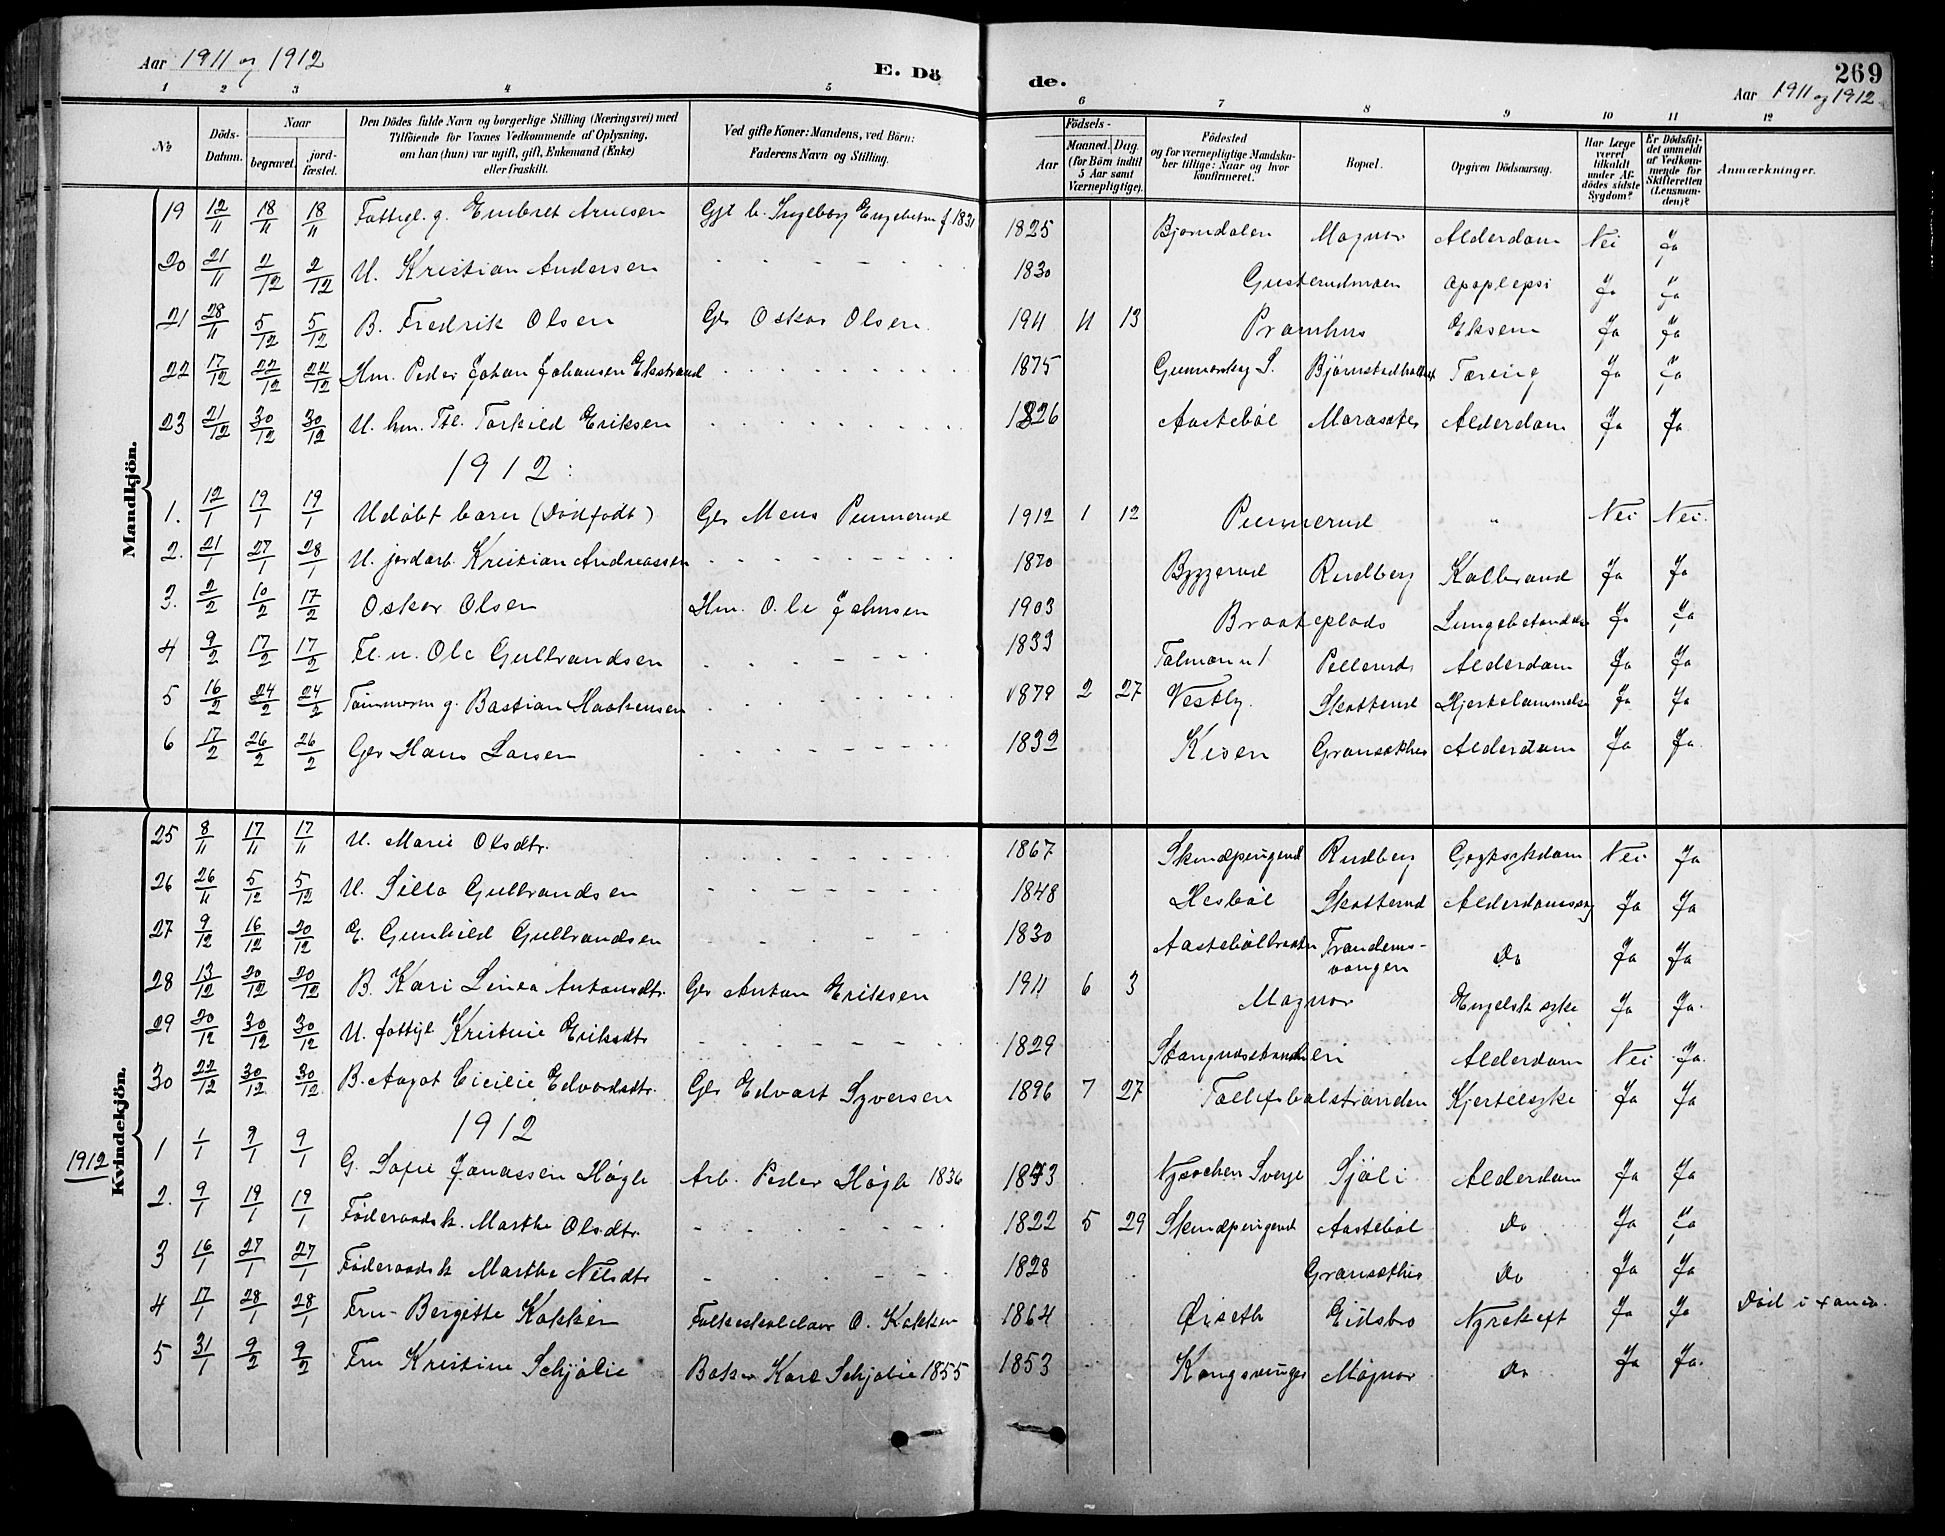 Aar 1911 og 1912
E. Dö
de.
269
Aar 1911 og 1912
1 2 3 4 5 6 7 8 9 10 11 12
№
Döds-Datum.
Naar begravet. jord-fæstet.
Den Dödes fulde Navn og borgerlige Stilling (Næringsvei) med Tilföiende for Voxnes Vedkommende af Oplysning, om han (hun) var ugift, gift, Enkemand (Enke) eller fraskilt.
Ved gifte Koner: Mandens, ved Börn: Faderens Navn og Stilling.
Födsels-
Aar
Maaned. Dag. (for Börn indtil 5 Aar samt Værnepligtige).
Födested og for værnepligtige Mandskaber tillige: Naar og hvor konfirmeret.
Bopæl.
Opgiven Dödsaarsag.
Har Læge været tilkaldt under Afdödes sidste Sygdom?
Er Dödsfaldet anmeldt af Vedkommende for Skifteretten (Lensmanden)?
Anmærkninger.
Mandkjön.
19 12/11 18/11 18/11 Fattigl. g. Embret Arnesen Gift b. Ingeborg Engebretsen f 1831 1825 Bjørndalen Magnor Alderdom Nei Ja
20 21/11 2/12 2/12 U. Kristian Andersen 1830 Gusterudmoen apoplepsi Ja Ja
21 28/11 5/12 5/12 B. Fredrik Olsen Gbr Oskar Olsen. 1911 11 13 Pramhus Eksem Ja Ja
22 17/12 22/12 22/12 Hm. Peder Johan Johansen Ekstrand 1875 Gunnarskog S. Tæring Ja Ja
23 21/12 30/12 30/12 U. hm. Ttl. Torkild Eriksen 1826 Aastebøl Alderdom Ja Ja
1912:
1. 12/1 19/1 19/1 Udøbt barn (Dødfødt) Gbr Mens Punnerud 1912 1 12 Punnerud " Nei Nei.
2. 21/1 27/1 28/1 U. jordarb. Kristian Andreassen 1870 Byggerud Rudberg Kolbrand Ja Ja
3. 2/2 10/2 17/2 Oskar Olsen Hm. Ole Johnsen 1903 Braateplads Lungebetændelse Ja Ja
4 9/2 17/2 17/2 Fl. u. Ole Gulbrandsen 1833 Pellerud Alderdom Ja Ja
5 16/2 24/2 24/2 Tømmerm g. Bastian Haakensen 1879 2 27 Vestby. Skotterud Hjertelammelse Ja Ja
6 17/2 26/2 26/2 Gbr Hans Larsen 1832 Kisen Gransæther Alderdom Ja Ja.
Kvindekjön.
25 8/11 17/11 17/11 U. Marie Olsdtr. 1867 Skindpungrud Rudberg Nei Ja
26 26/11 5/12 5/12 U. Silla Gulbrandsen 1848 Hesbøl Skotterud Ja Ja
27 9/12 16/12 20/12 E. Gunhild Gulbrandsen 1830 Aastebølbraaten Do Ja Ja
28 13/12 20/12 20/12 B. Kari Linea Antonsdtr. Gbr Anton Eriksen 1911 6 3 Magnor Engelsk syke Ja Ja.
29 20/12 30/12 30/12 U. fattigl Kristine Eriksdtr 1829 Alderdom Nei Ja.
30 22/12 30/12 30/12 B. Aagot Cicilie Edvardsdtr. Gbr Edvart Syversen 1896 7 27 Tollefsbølstranden Kjertelsyke Ja Ja
1912
1912
1 1/1 9/1 9/1 G. Sofie Jonassen Høgli Arb. Peder Høgli 1836 1843 Sverge Sjøli Alderdom Ja Ja
2. 9/1 19/1 19/1 Føderaadsk. Marthe Olsdtr. 1822 5 29 Skindpungrud Aastebøl Do Ja Ja
3 16/1 27/1 27/1 Føderaadsk Marthe Nilsdtr 1828 Gransæther Do Ja Ja
4 17/1 28/1 28/1 Fru Bergitte Kokkin Folkeskolelærer O. Kokkin 1864 Øiseth Eidsbro Nyrekeft Ja Ja Død i Xania.
5 31/1 9/2 9/2 Fru Kristine Schjølie Baker Karl Schjølie 1855 1853 Kongsvinger Magnor Do Ja Ja.